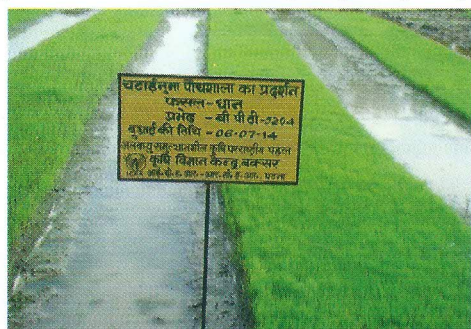 चटाईनुमा पौधशाला का प्रदर्शन
फसल-धान
प्रभेद - बी पी टी-5204
बुआई की तिथि - 06-07-14
जलवायु समुत्थानशील कृषि पर राष्ट्रीय पहल
कृषि विज्ञान केन्द्र बक्सर
आई.सी.ए.आर.-आर.सी.ई.आर. पटना